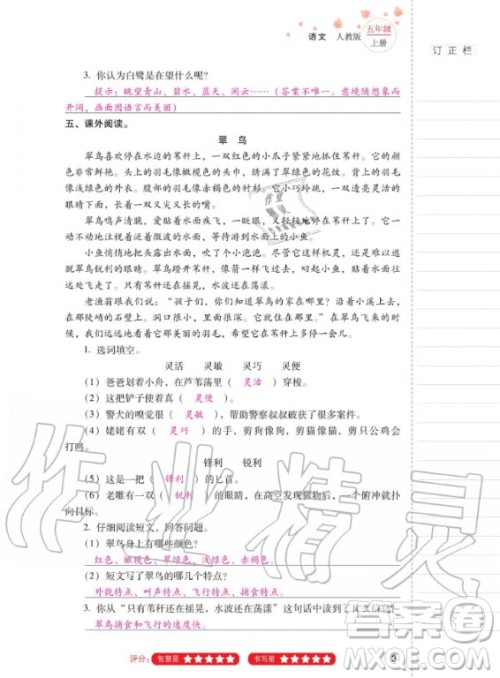 语文 人教版 五年级
上册
订正栏
3. 你认为白鹭是在望什么呢?
提示:眺望青山、碧水、蓝天、闲云……(答案不唯一。意境随想象而
开阔,画面因语言而美丽)
五、课外阅读。
翠鸟
翠鸟喜欢停在水边的苇秆上,一双红色的小爪子紧紧地抓住苇秆。它的
颜色非常鲜艳。头上的羽毛像橄榄色的头巾,绣满了翠绿色的花纹。背上的羽毛
像浅绿色的外衣。腹部的羽毛像赤褐色的衬衫。它小巧玲珑,一双透亮灵活的
眼睛下面,长着一张又尖又长的嘴。
翠鸟鸣声清脆,爱贴着水面疾飞,一眨眼,又轻轻地停在苇秆上了。它
一动不动地注视着泛着微波的水面,等待游到水面上来的小鱼。
小鱼悄悄地把头露出水面,吹了个小泡泡。尽管它这样机灵,还是难以逃
脱翠鸟锐利的眼睛。翠鸟蹬开苇秆,像箭一样飞过去,叼起小鱼,贴着水面往
远处飞走了。只有苇秆还在摇晃,水波还在荡漾。
老渔翁眼我们说:“孩子们,你们知道翠鸟的家在哪里?沿着小溪上去,
在那陡峭的石壁上。它从那么远的地方飞到这里来,是要和你们做朋友的呀!”
我们的脸有些发红,打消了这个念头。在翠鸟飞来的时候,我们远远地看着
它那美丽的羽毛,希望它在苇秆上多停一会儿。
1. 选词填空。
灵活 灵敏 灵巧 灵便
(1)爸爸划着小舟,在芦苇荡里( 灵活 )穿梭。
(2)这把铲子使着真( 灵便 )。
(3)警犬的嗅觉很( 灵敏 ),帮助警察叔叔破获了很多案。
(4)姥姥有双( 灵巧 )的手,剪狗像狗,剪猫像猫,剪只公鸡会
打鸣。
锋利 锐利
(5)这是一把( 锋利 )的匕首。
(6)老雕有一双( 锐利 )的眼睛,在高空发现猎物后,一个俯冲就扑
向目标。
2. 仔细阅读短文,回答问题。
(1)翠鸟身上有哪些颜色?
红色、橄榄色、翠绿色、浅绿色、赤褐色。
(2)短文写了翠鸟的哪几个特点?
外貌特点、叫声特点、飞行特点、捕食特点。
3. 你从“只有苇秆还在摇晃,水波还在荡漾”这句话中读出了什么?
翠鸟捕食和飞行的速度快。
评分: 智慧星 ★★★★★ 书写星 ★★★★★
3
作业精灵
答案圈
MXQE.COM